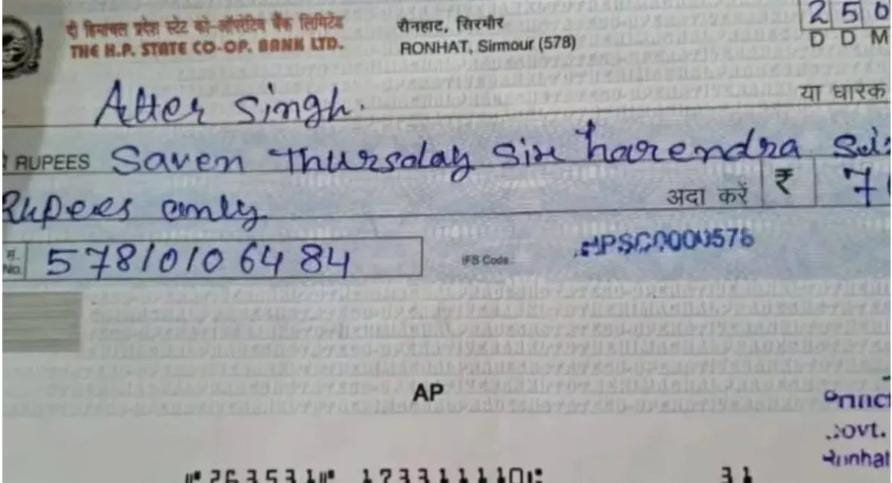 दी हिमाचल प्रदेश स्टेट को-ऑपरेटिव बैंक लिमिटेड
THE H.P. STATE CO-OP. BANK LTD.
रौनहाट, सिरमौर
RONHAT, Sirmour (578)
2 5 0
D D M
Atter Singh.
या धारक
RUPEES Saven Thursday Six harendra
Rupees only
अदा करें ₹ 7
No. 57810106484
IFS Code HPSC0000578
AP
Govt.
Ronhat
⑈263531⑈ 173311110⑆ 31